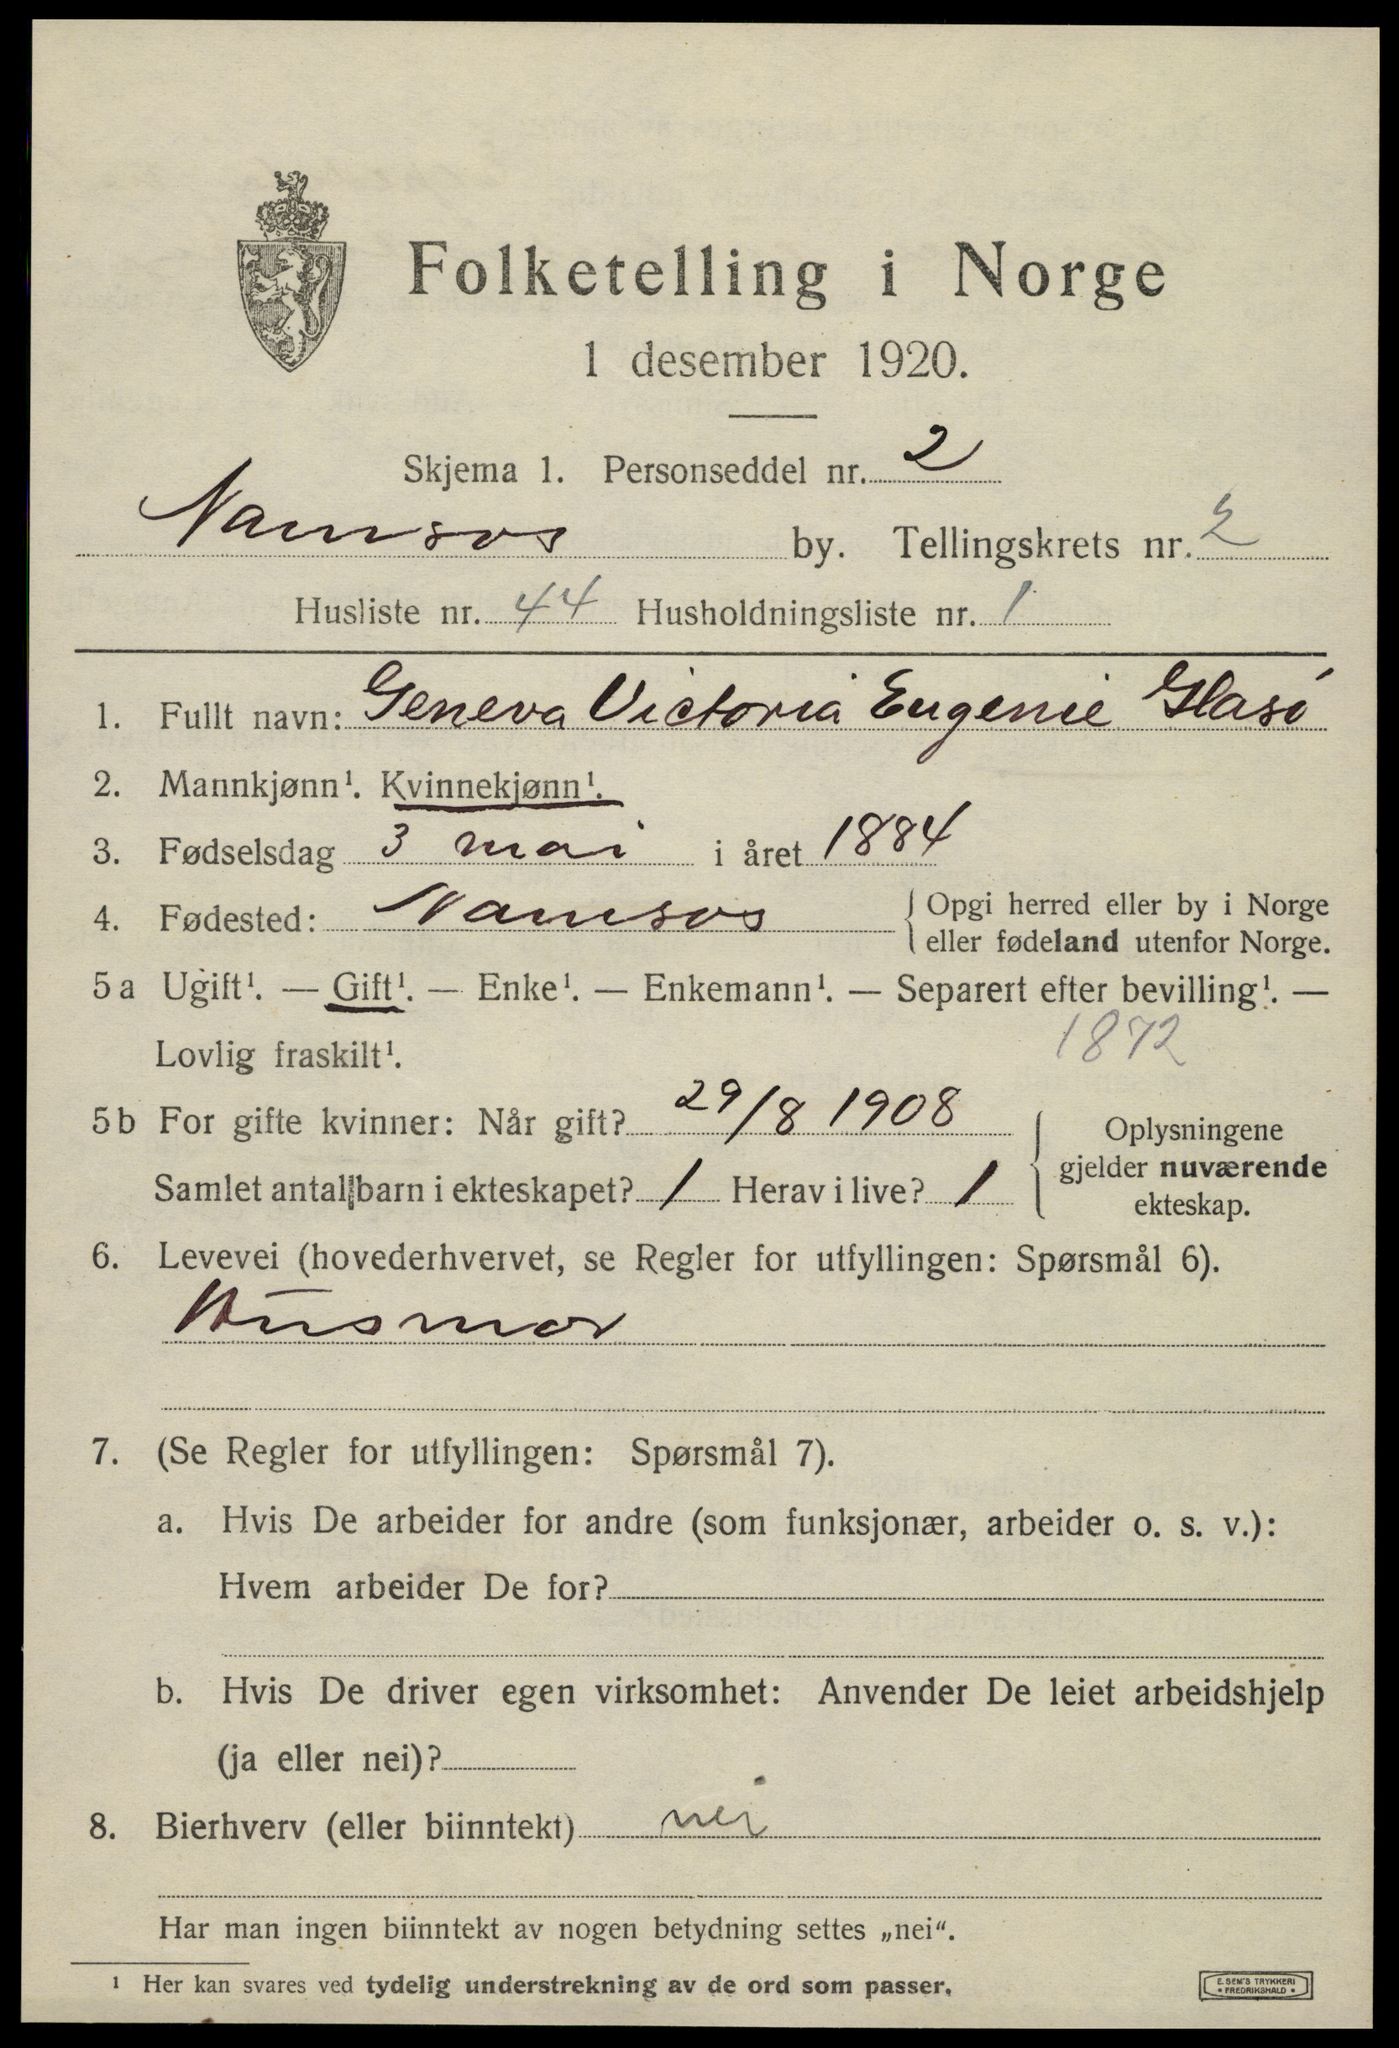 Folketelling i Norge
1 desember 1920.
Skjema 1. Personseddel nr. 2
Namsos by. Tellingskrets nr. 2
Husliste nr. 44 Husholdningsliste nr. 1
1. Fullt navn: Geneva Victoria Eugenie Glasø
2. Mannkjønn¹. Kvinnekjønn¹.
3. Fødselsdag 3 mai i året 1884
4. Fødested: Namsos { Opgi herred eller by i Norge
eller fødeland utenfor Norge.
5a Ugift¹. — Gift¹. — Enke¹. — Enkemann¹. — Separert efter bevilling¹. —
Lovlig fraskilt¹. 1872
5b For gifte kvinner: Når gift? 29/8 1908
Samlet antal barn i ekteskapet? 1 Herav i live? 1
{ Oplysningene
gjelder nuværende
ekteskap.
6. Levevei (hovederhvervet, se Regler for utfyllingen: Spørsmål 6).
Husmor
7. (Se Regler for utfyllingen: Spørsmål 7).
a. Hvis De arbeider for andre (som funksjonær, arbeider o. s. v.):
Hvem arbeider De for?
b. Hvis De driver egen virksomhet: Anvender De leiet arbeidshjelp
(ja eller nei)?
8. Bierhverv (eller biinntekt) nei
Har man ingen biinntekt av nogen betydning settes „nei“.
¹ Her kan svares ved tydelig understrekning av de ord som passer.
E. SEM'S TRYKKERI
• FREDRIKSHALD •